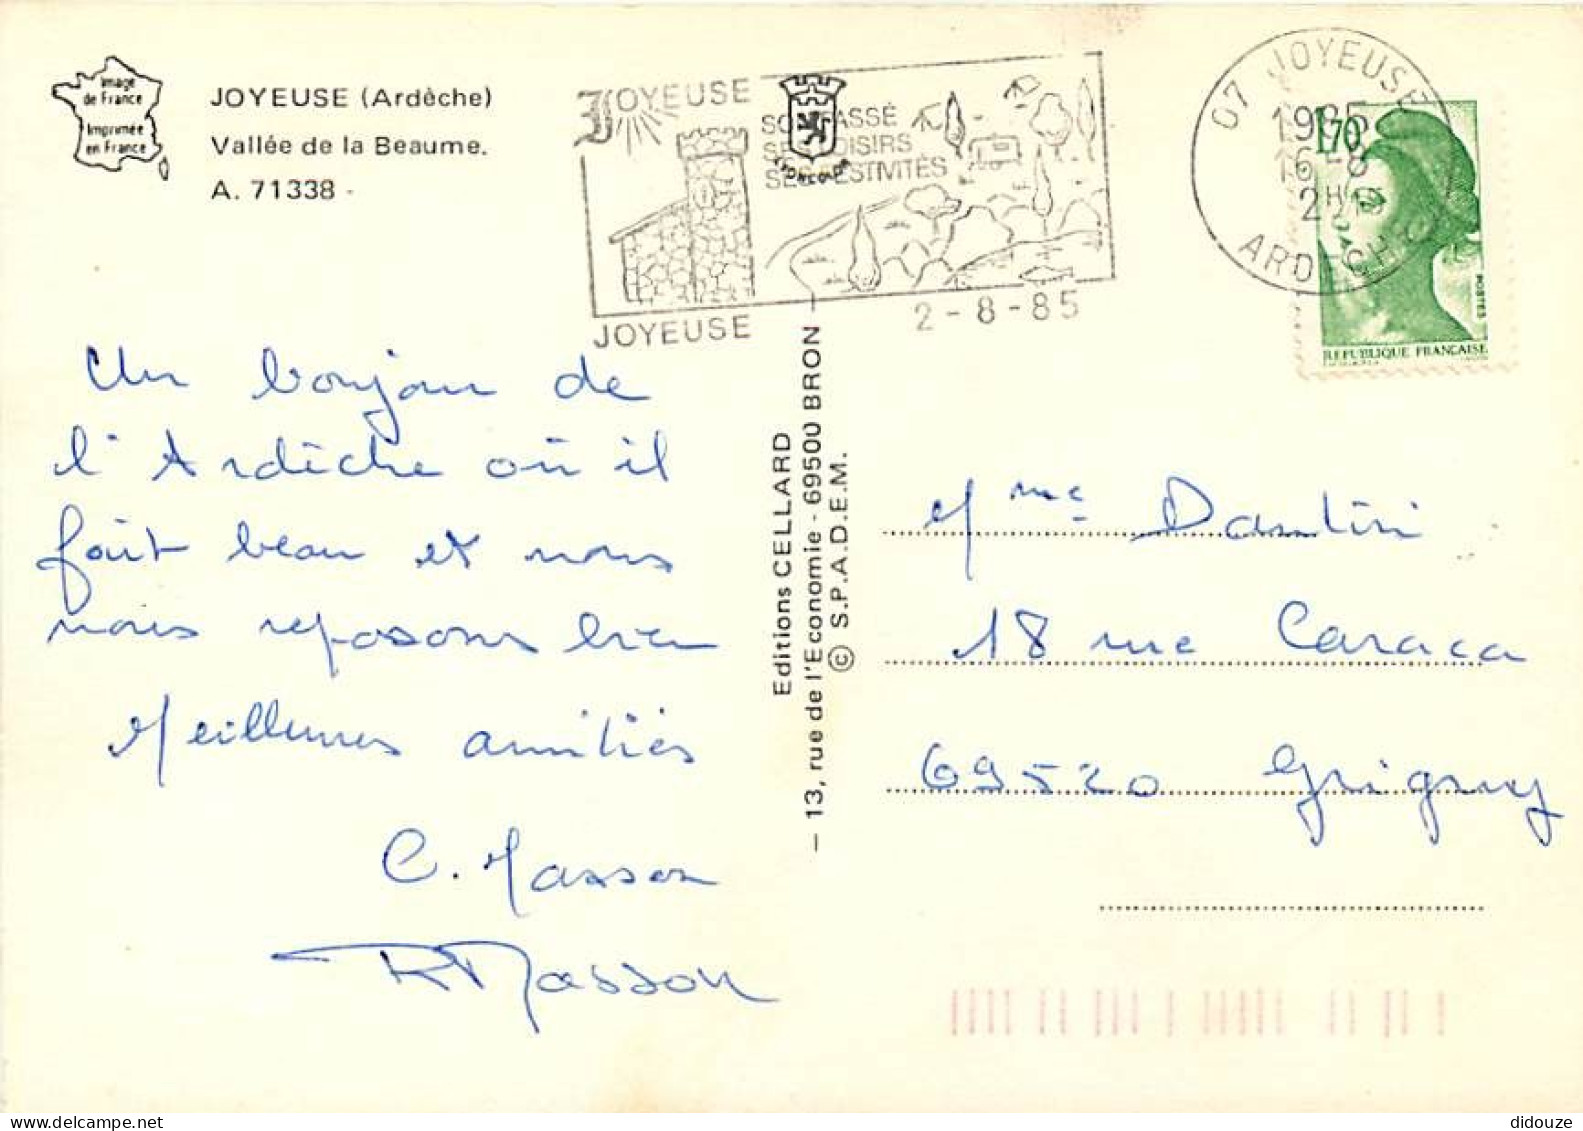 Image
de France
Imprimée
en France
JOYEUSE (Ardèche)
Vallée de la Beaume.
A. 71338
JOYEUSE
SON PASSÉ
SES LOISIRS
SES FESTIVITÉS
LYONCOLOR
JOYEUSE
2-8-85
07 JOYEUSE
1985
16-8
2H
ARDECHE
1,70
POSTES
REPUBLIQUE FRANÇAISE
Un bonjour de
l'Ardèche où il
fait beau et nous
nous reposons bien
Meilleures amitiés
C. Masson
R Masson
Editions CELLARD
– 13, rue de l'Economie - 69500 BRON –
© S.P.A.D.E.M.
Mme Dantin
18 rue Caraca
69520 Grigny
didouze